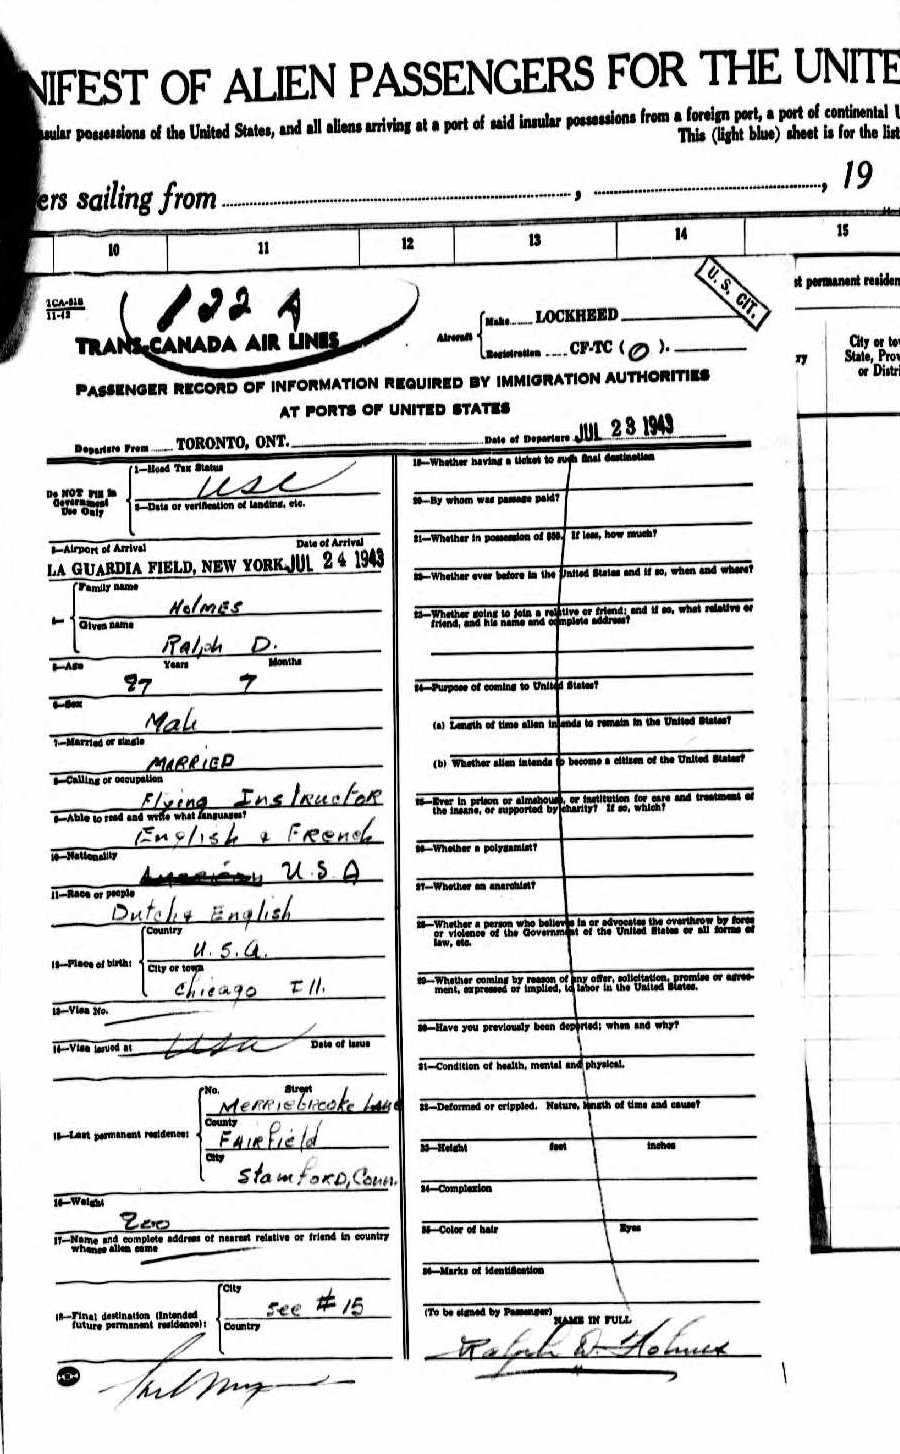 NIFEST OF ALIEN PASSENGERS FOR THE UNITE
sular possessions of the United States, and all aliens arriving at a port of said insular possessions from a foreign port, a port of continental U
This (light blue) sheet is for the list
ers sailing from , , 19
10 11 12 13 14 15
U. S. CIT.
t permanent residen
1CA-818
11-42
122 A
TRANS-CANADA AIR LINES
Aircraft
Make LOCKHEED
Registration CF-TC ( O ).
ry
City or to
State, Prov
or Distri
PASSENGER RECORD OF INFORMATION REQUIRED BY IMMIGRATION AUTHORITIES
AT PORTS OF UNITED STATES
Departure From TORONTO, ONT. Date of Departure JUL 23 1943
Do NOT Fill in
Government
Use Only
1—Head Tax Status
USC
2—Data or verification of landing, etc.
3—Airport of Arrival Date of Arrival
LA GUARDIA FIELD, NEW YORK JUL 24 1943
4—
Family name
HOLMES
Given name
Ralph D.
5—Age Years Months
27 7
6—Sex
Male
7—Married or single
MARRIED
8—Calling or occupation
Flying Instructor
9—Able to read and write what languages?
English & French
10—Nationality
American U.S.A
11—Race or people
Dutch & English
12—Place of birth:
Country
U.S.A.
City or town
Chicago Ill.
13—Visa No.
14—Visa issued at USA Date of Issue
15—Last permanent residence:
No. Street
Merriebrooke Lane
County
Fairfield
City
Stamford, Conn.
16—Weight
200
17—Name and complete address of nearest relative or friend in country
whence alien came
18—Final destination (Intended
future permanent residence):
City
See #15
Country
19—Whether having a ticket to such final destination
20—By whom was passage paid?
21—Whether in possession of $50. If less, how much?
22—Whether ever before in the United States and if so, when and where?
23—Whether going to join a relative or friend; and if so, what relative or
friend, and his name and complete address?
24—Purpose of coming to United States?
(a) Length of time alien intends to remain in the United States?
(b) Whether alien intends to become a citizen of the United States?
25—Ever in prison or almshouse, or institution for care and treatment of
the insane, or supported by charity? If so, which?
26—Whether a polygamist?
27—Whether an anarchist?
28—Whether a person who believes in or advocates the overthrow by force
or violence of the Government of the United States or all forms of
law, etc.
29—Whether coming by reason of any offer, solicitation, promise or agree-
ment, expressed or implied, to labor in the United States.
30—Have you previously been deported; when and why?
31—Condition of health, mental and physical.
32—Deformed or crippled. Nature, length of time and cause?
33—Height feet inches
34—Complexion
35—Color of hair Eyes
36—Marks of identification
(To be signed by Passenger)
NAME IN FULL
Ralph D. Holmes